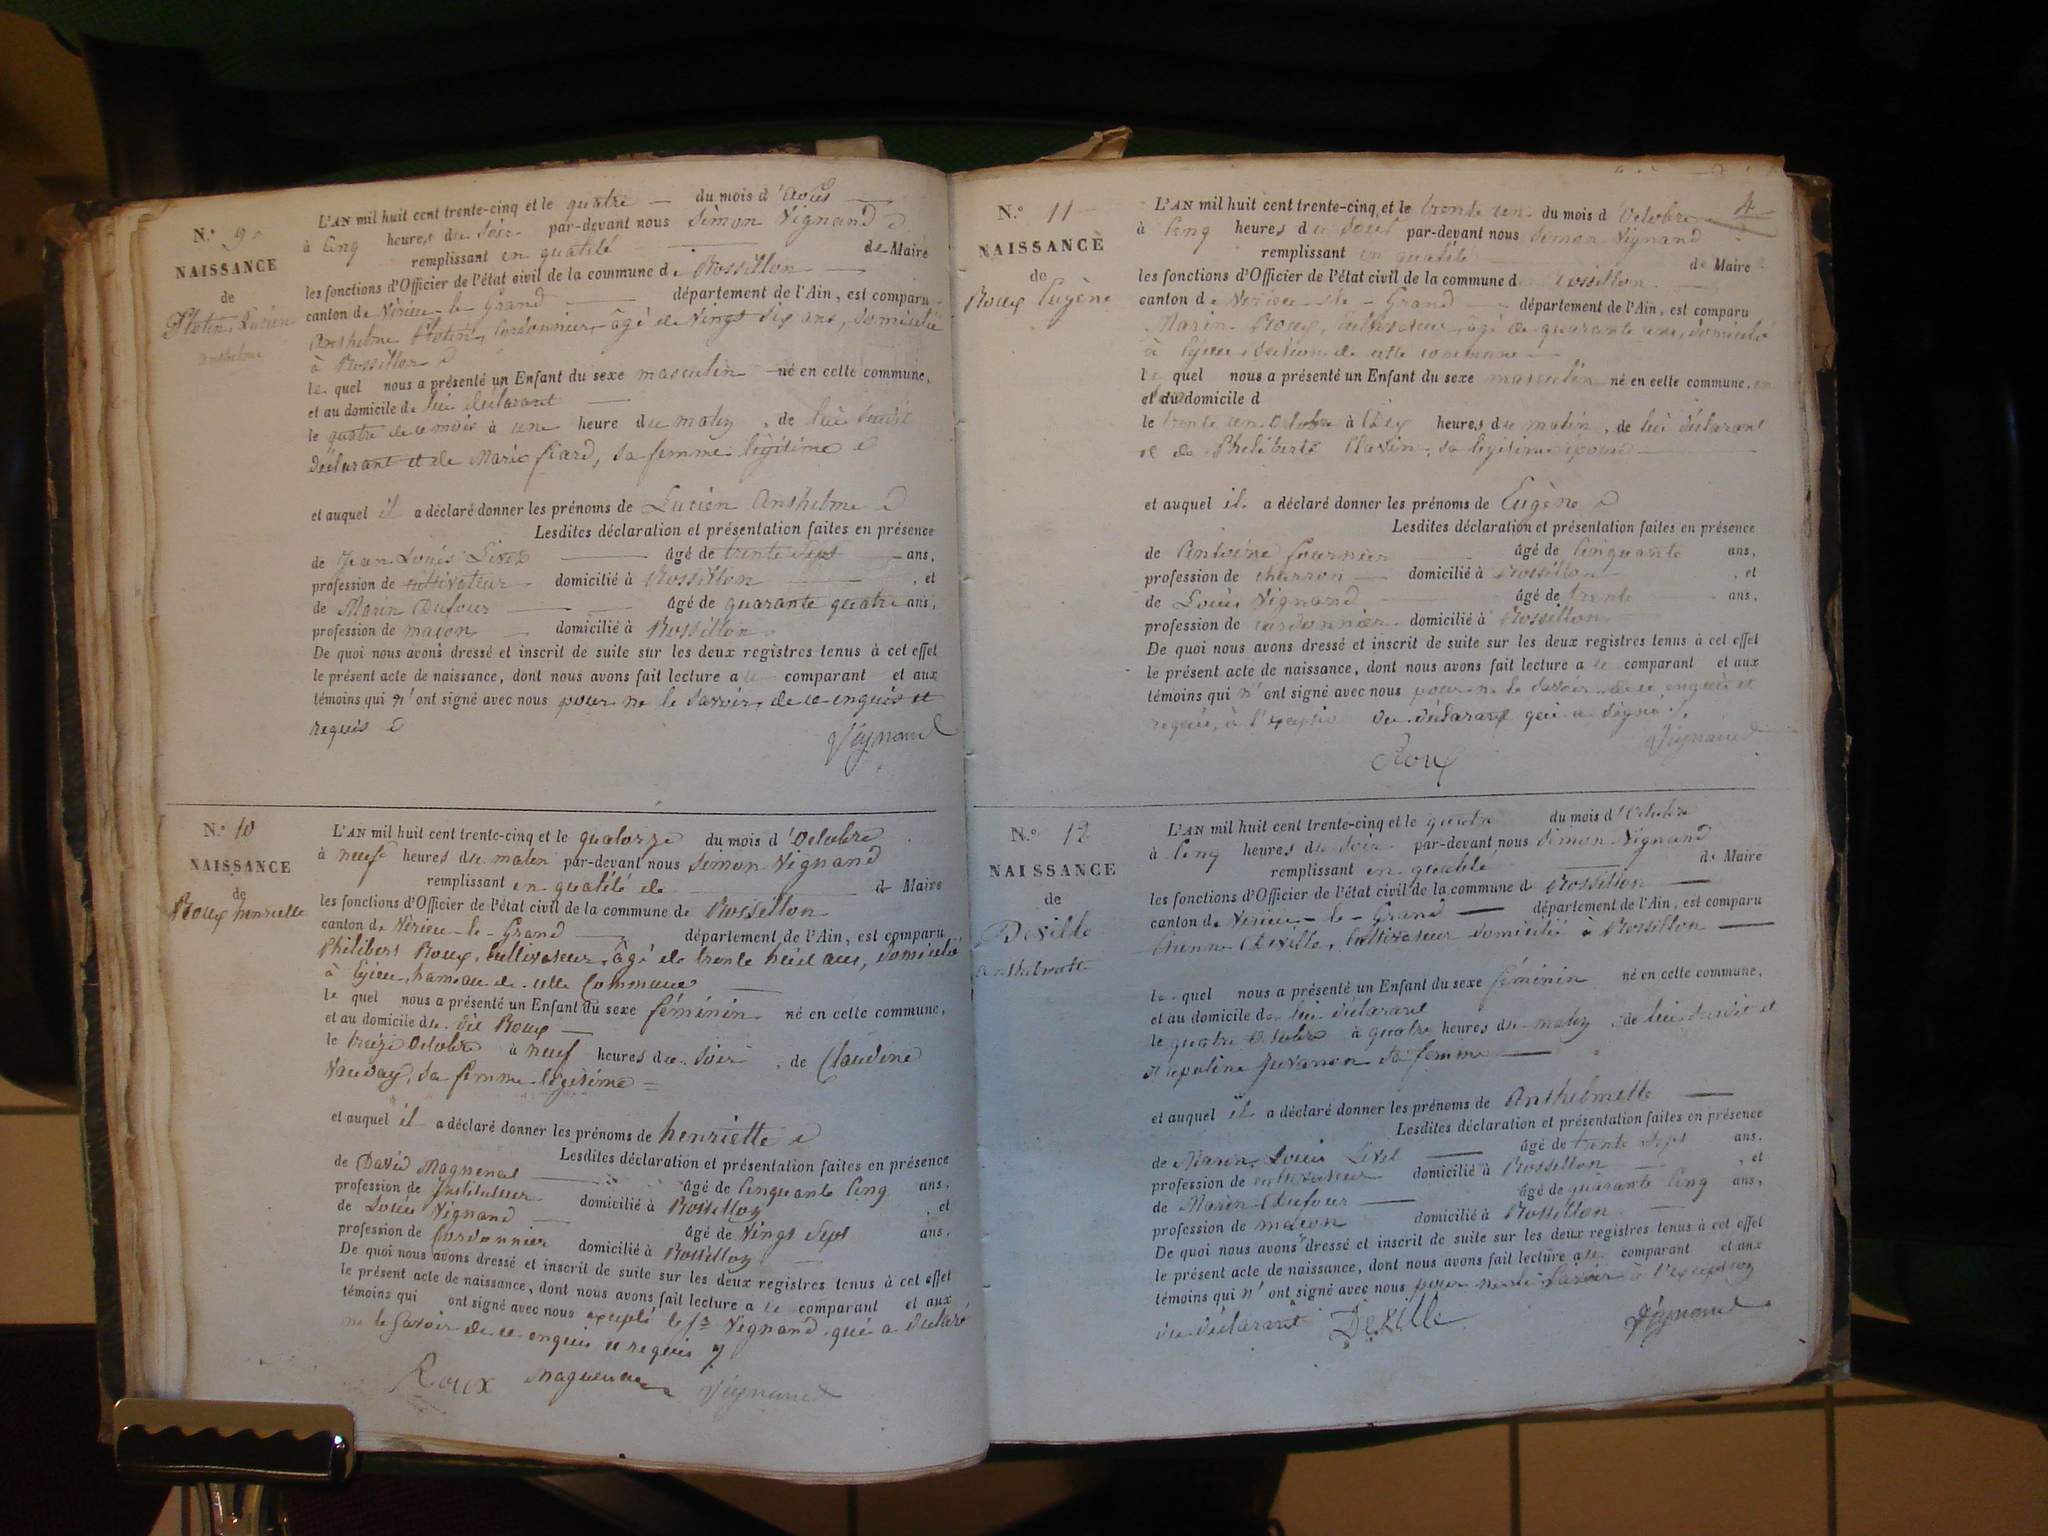 N.° 9
NAISSANCE
de
Lucien
anshelme
L'AN mil huit cent trente-cinq et le quatre du mois d'Août
à cinq heures du soir par-devant nous Simon Vignand
remplissant en qualité de Maire
les fonctions d'Officier de l'état civil de la commune de Rossillon
canton de Virieu-le-Grand département de l'Ain, est comparu
Anshelme cordonnier, âgé de vingt six ans, domicilié
à Rossillon
le quel nous a présenté un Enfant du sexe masculin né en cette commune,
et au domicile de lui déclarant
le quatre de ce mois à une heure du matin, de lui susdit
déclarant et de Marie fiard, sa femme légitime
et auquel il a déclaré donner les prénoms de Lucien Anshelme
Lesdites déclaration et présentation faites en présence
de Jean Louis Livet âgé de trente sept ans,
profession de cultivateur domicilié à Rossillon, et
de Marin Dufour âgé de quarante quatre ans,
profession de maçon domicilié à Rossillon
De quoi nous avons dressé et inscrit de suite sur les deux registres tenus à cet effet
le présent acte de naissance, dont nous avons fait lecture a le comparant et aux
témoins qui n'ont signé avec nous pour ne le savoir, de ce enquis et
requis
Vignand
N.° 10
NAISSANCE
de
Roux henriette
L'AN mil huit cent trente-cinq et le quatorze du mois d'Octobre
à neuf heures du matin par-devant nous Simon Vignand
remplissant en qualité de de Maire
les fonctions d'Officier de l'état civil de la commune de Rossillon
canton de Virieu-le-Grand département de l'Ain, est comparu
Philibert Roux, cultivateur, âgé de trente huit ans, domicilié
à Egieu, hameau de cette Commune
le quel nous a présenté un Enfant du sexe féminin né en cette commune,
et au domicile du dit Roux
le treize Octobre à neuf heures du soir, de Claudine
Vauday, sa femme légitime
et auquel il a déclaré donner les prénoms de henriette
Lesdites déclaration et présentation faites en présence
de David âgé de cinquante cinq ans,
profession de Instituteur domicilié à Rossillon, et
de Louis Vignand âgé de vingt sept ans,
profession de Cordonnier domicilié à Rossillon
De quoi nous avons dressé et inscrit de suite sur les deux registres tenus à cet effet
le présent acte de naissance, dont nous avons fait lecture a le comparant et aux
témoins qui ont signé avec nous excepté le Sr Vignand qui a déclaré
ne le savoir de ce enquis et requis
Roux Vignand
N.° 11
NAISSANCE
de
Roux Eugène
4
L'AN mil huit cent trente-cinq et le trente un du mois d'Octobre
à cinq heures du soir par-devant nous Simon Vignand
remplissant en qualité de Maire
les fonctions d'Officier de l'état civil de la commune de Rossillon
canton de Virieu-le-Grand département de l'Ain, est comparu
Marin Roux, cultivateur, âgé de quarante ans, domicilié
à Egieu section de cette commune
le quel nous a présenté un Enfant du sexe masculin né en cette commune, en
et au domicile d
le trente un Octobre à Dix heures du matin, de lui déclarant
et de Philiberte Clavin, sa légitime épouse
et auquel il a déclaré donner les prénoms de Eugène
Lesdites déclaration et présentation faites en présence
de Antoine fournier âgé de cinquante ans,
profession de charron domicilié à Rossillon, et
de Louis Vignand âgé de trente ans,
profession de cordonnier domicilié à Rossillon
De quoi nous avons dressé et inscrit de suite sur les deux registres tenus à cet effet
le présent acte de naissance, dont nous avons fait lecture a le comparant et aux
témoins qui n'ont signé avec nous pour ne le savoir de ce enquis et
requis, à l'exceptio du déclarant qui a signé
Vignand
Roux
N.° 12
NAISSANCE
de
Deville
anshelmette
L'AN mil huit cent trente-cinq et le quatre du mois d'Octobre
à cinq heures du soir par-devant nous Simon Vignand
remplissant en qualité de Maire
les fonctions d'Officier de l'état civil de la commune de Rossillon
canton de Virieu-le-Grand département de l'Ain, est comparu
Etienne Deville, cultivateur domicilié à Rossillon
le quel nous a présenté un Enfant du sexe féminin né en cette commune,
et au domicile de lui déclarant
le quatre Octobre à quatre heures du matin, de lui susdit et
et sa femme
et auquel il a déclaré donner les prénoms de Anshelmette
Lesdites déclaration et présentation faites en présence
de Marin Louis Livet âgé de trente sept ans,
profession de cultivateur domicilié à Rossillon, et
de Marin Dufour âgé de quarante cinq ans,
profession de maçon domicilié à Rossillon
De quoi nous avons dressé et inscrit de suite sur les deux registres tenus à cet effet
le présent acte de naissance, dont nous avons fait lecture a le comparant et aux
témoins qui n'ont signé avec nous pour ne le savoir à l'exception
du déclarant Deville Vignand